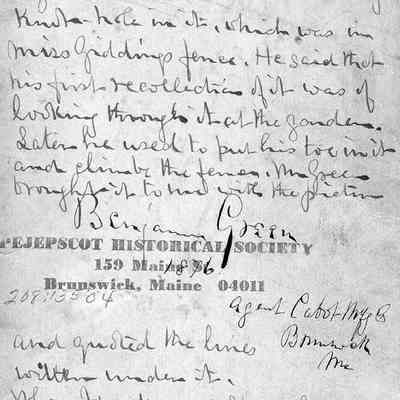 Knot-hole in it, which was in
Miss Giddings fence. He said that
his first recollection of it was of
looking through it at the garden.
Later he used to put his toe in it
and climb the fence. Mr Green
brought it to me with the picture
Benjamin Green
PEJEPSCOT HISTORICAL SOCIETY
159 Maine St
1896
Brunswick, Maine 04011
Agent Cabot Mfg Co
Brunswick
Me
and quoted the lines
written under it.